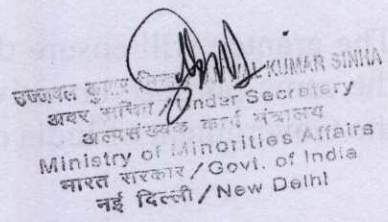 उज्जवल कुमार KUMAR SINHA
अवर सचिव / Under Secretary
अल्पसंख्यक कार्य मंत्रालय
Ministry of Minorities Affairs
भारत सरकार / Govt. of India
नई दिल्ली / New Delhi